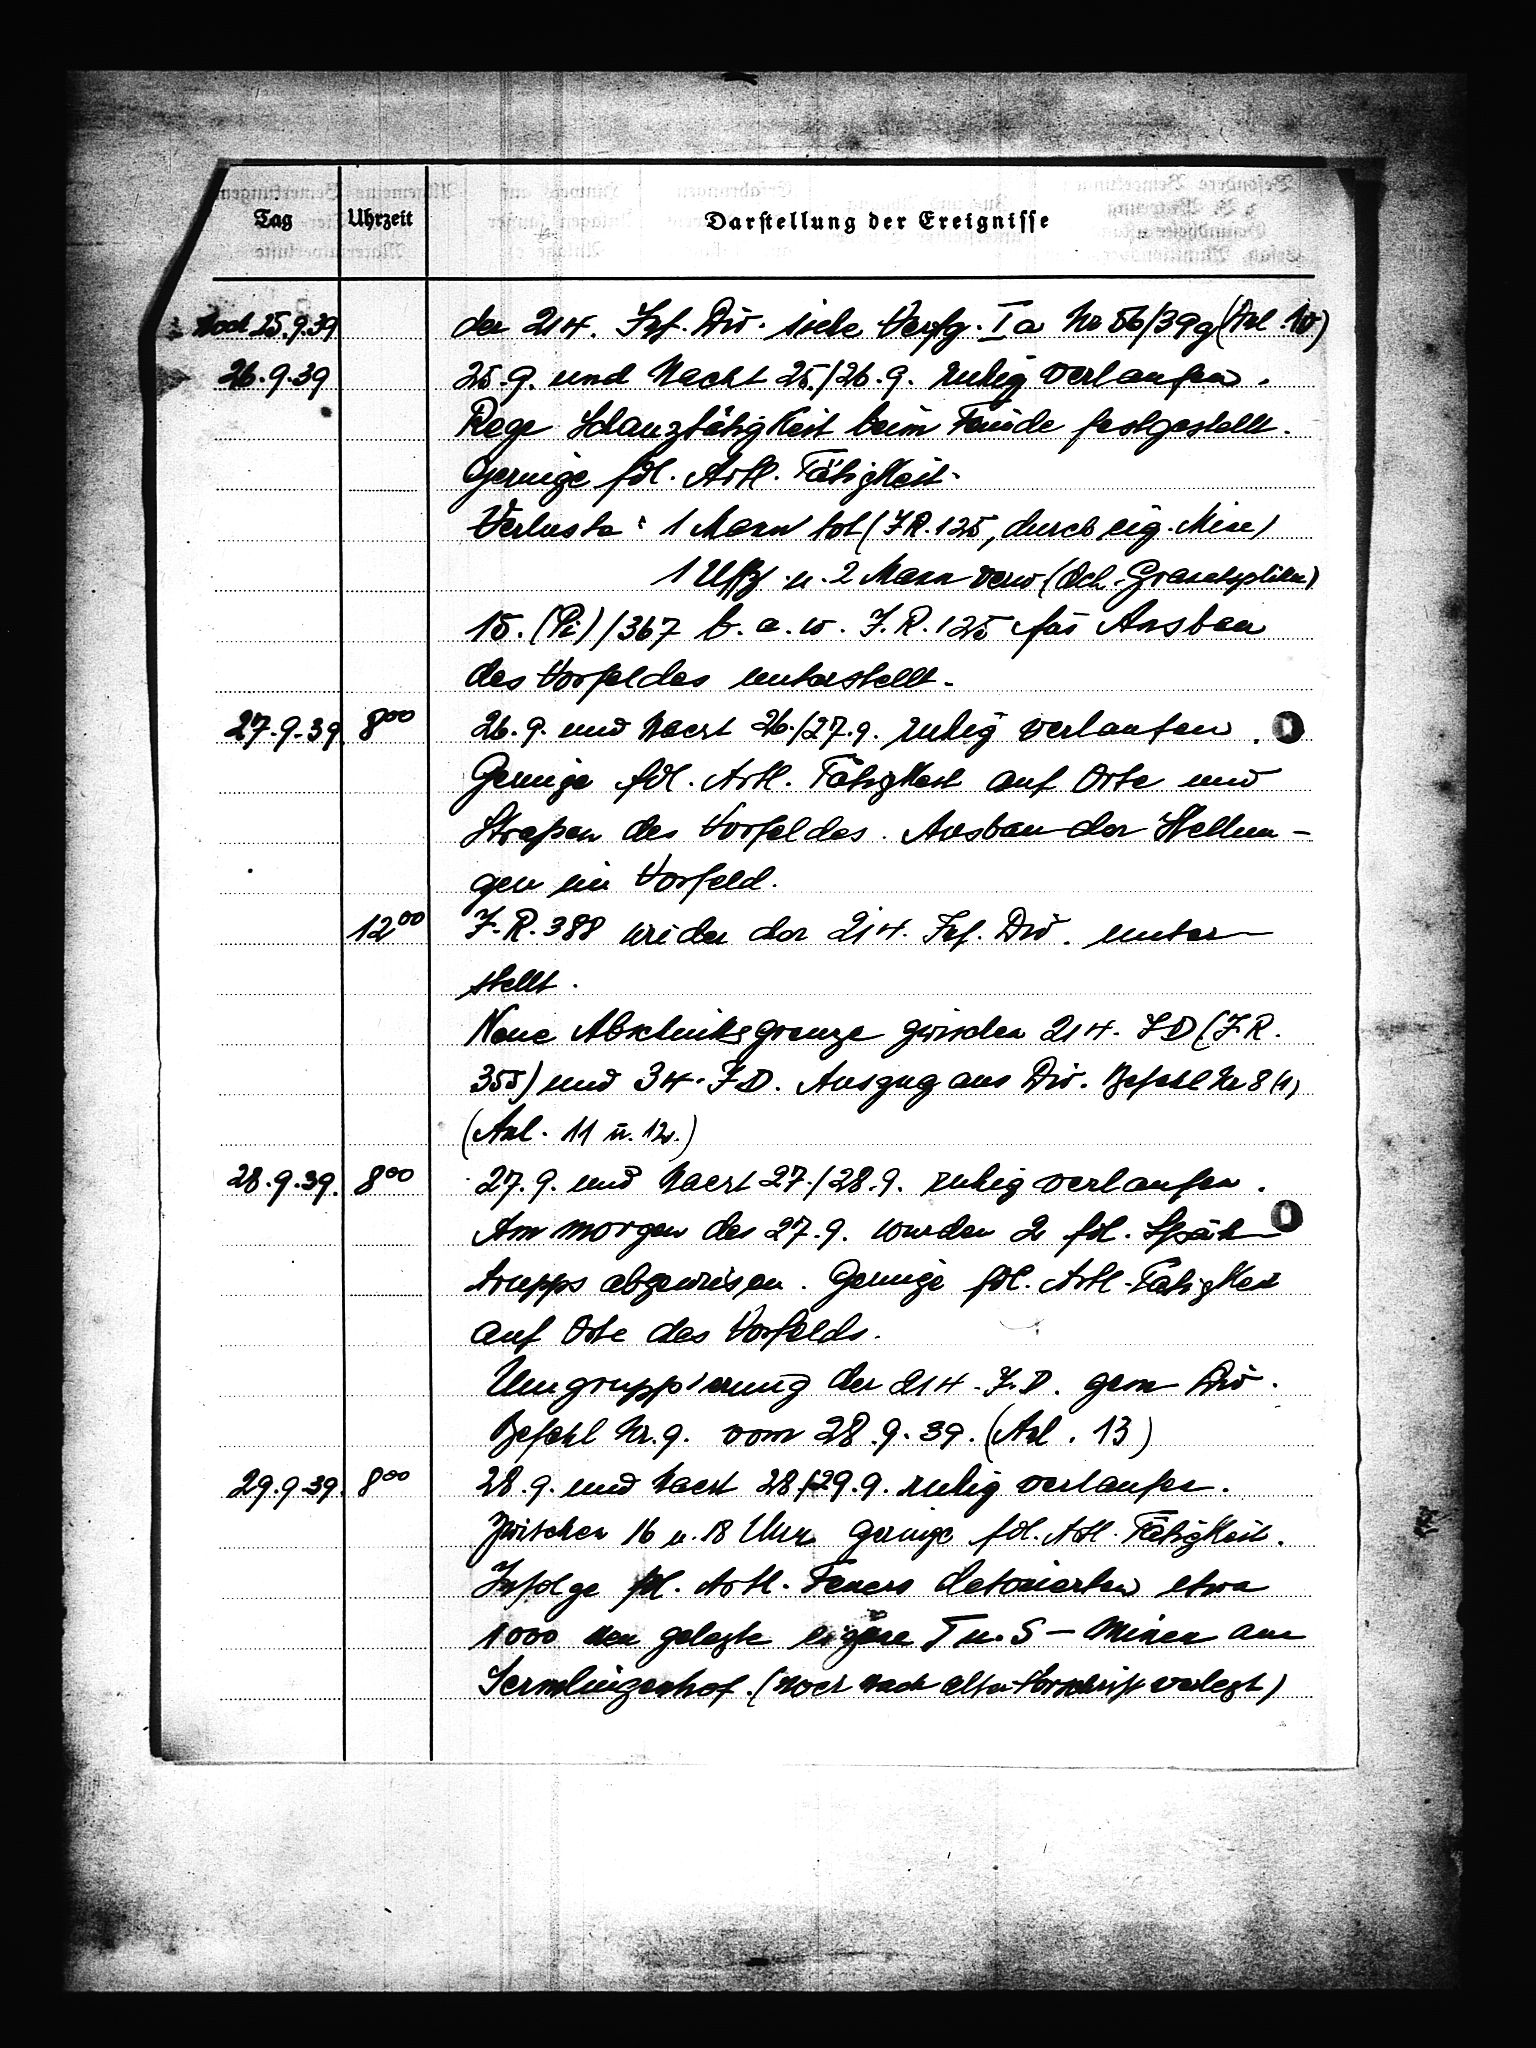 Tag Uhrzeit Darstellung der Ereignisse
Noch 25.9.39 der 214. Inf. Div. siehe Verfg. Ia Nr 56/39g (Anl. 10)
26.9.39 25.9. und Nacht 25./26.9. ruhig verlaufen.
Rege Schanztätigkeit beim Feinde festgestellt.
Geringe fdl. Artl. Tätigkeit.
Verluste: 1 Mann tot (J.R. 125, durch eig. Mine)
1 Uffz. u. 2 Mann verw (dch. Granatsplitter)
15. (Pi) / 367 b. a. w. J.R. 125 für Ausbau
des Vorfeldes unterstellt.
27.9.39. 8⁰⁰ 26.9. und Nacht 26./27.9. ruhig verlaufen.
Geringe fdl. Artl. Tätigkeit auf Orte und
Straßen des Vorfeldes. Ausbau der Stellun-
gen im Vorfeld.
12⁰⁰ J.R. 388 wieder der 214. Inf. Div. unter-
stellt.
Neue Abschnittsgrenze zwischen 214. JD (J.R.
355) und 34. J.D. Auszug aus Div. Befehl Nr 8 (1)
(Anl. 11 u. 12.)
28.9.39. 8⁰⁰ 27.9. und Nacht 27./28.9. ruhig verlaufen.
Am Morgen des 27.9. wurden 2 fdl. Späh-
trupps abgewiesen. Geringe fdl. Artl-Tätigkeit
auf Orte des Vorfelds.
Umgruppierung der 214. J.D. gem Div.
Befehl Nr. 9. vom 28.9.39. (Anl. 13)
29.9.39. 8⁰⁰ 28.9. und Nacht 28./29.9. ruhig verlaufen.
Zwischen 16 u. 18 Uhr geringe fdl. Artl. Tätigkeit.
Infolge fdl. Artl. Feuers detonierten etwa
1000 neu gelegte eigene T u. S - Minen am
(Noch nach alter Vorschrift verlegt)